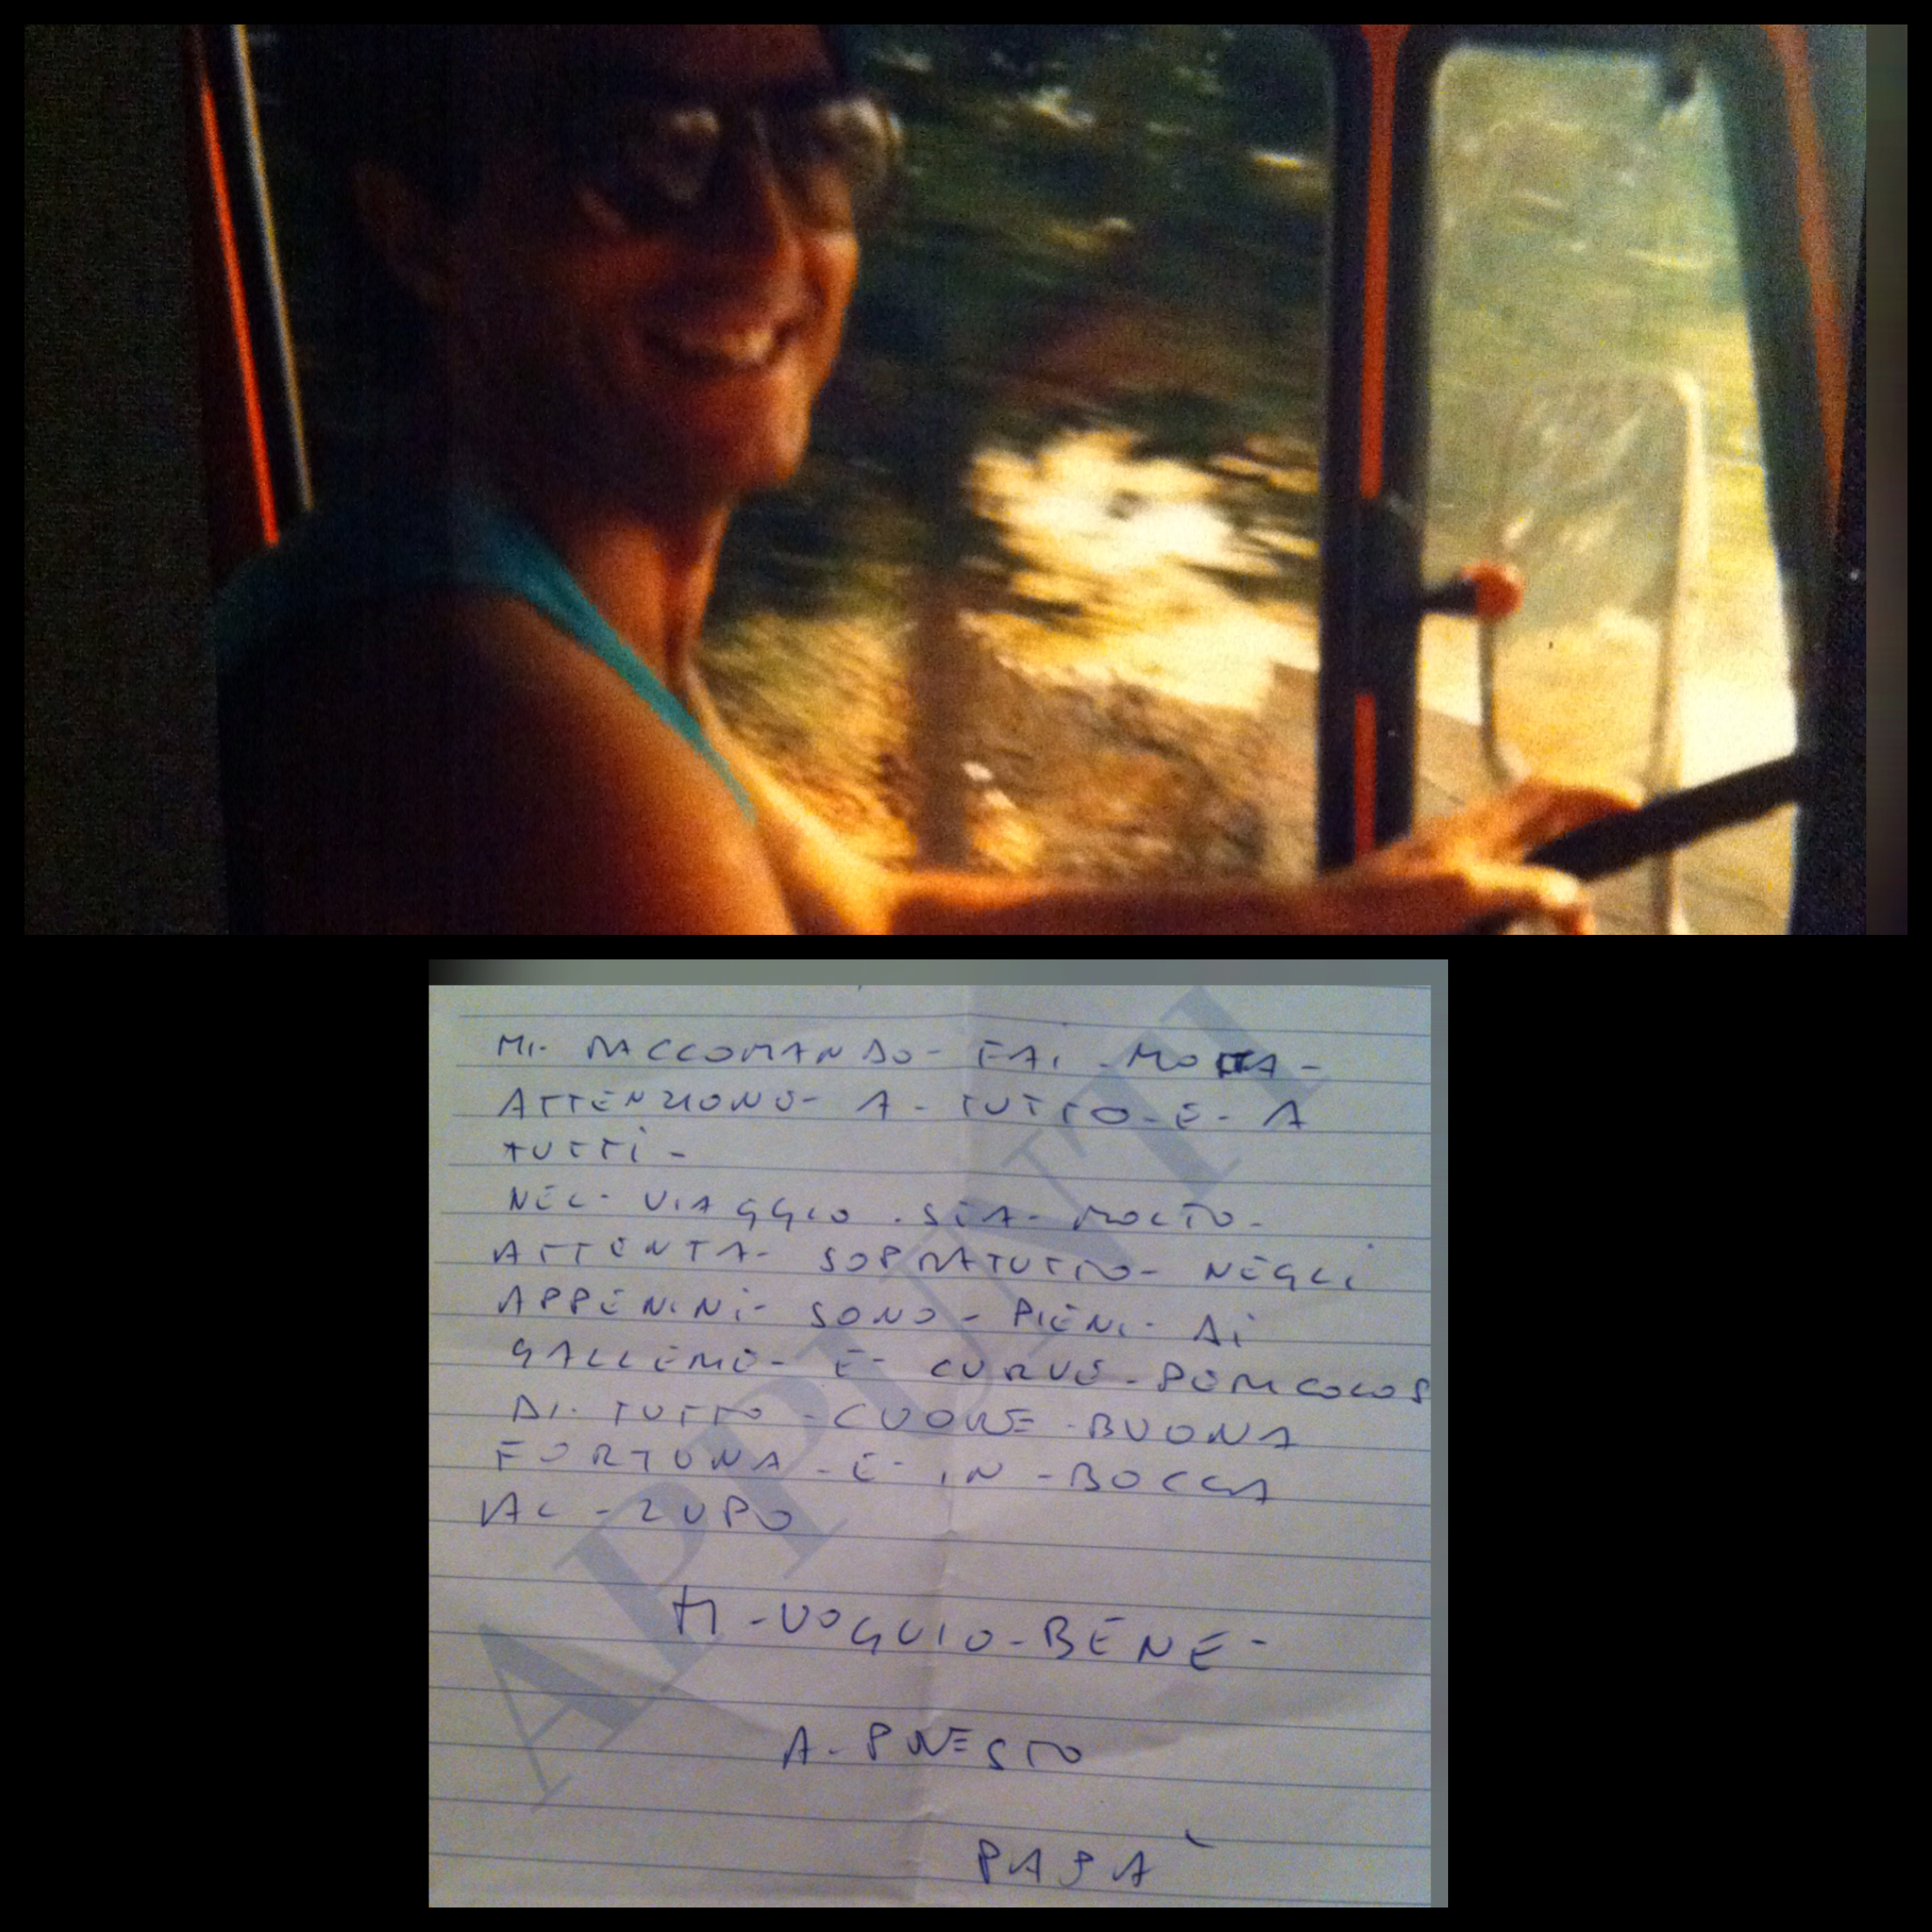 MI- RACCOMANDO- FAI -MOLTA-
ATTENZIONE- A- TUTTO-E- A
TUTTI-
NEL- VIAGGIO .SIA- MOLTO-
ATTENTA- SOPRATUTTO- NEGLI
APPENINI- SONO- PIENI- DI
GALLERIE- E- CURVE-PERICOLOS
DI- TUTTO -CUORE -BUONA
FORTUNA -E- IN -BOCCA
AL - LUPO
TI -VOGLIO-BENE-
A- PRESTO
PAPA`
APPUNTI